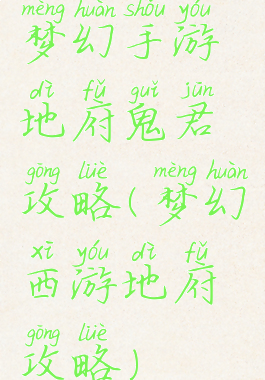 mèng huàn shǒu yóu
梦幻手游
dì fǔ guǐ jūn
地府鬼君
gōng lüè mèng huàn
攻略(梦幻
xī yóu dì fǔ
西游地府
gōng lüè
攻略)